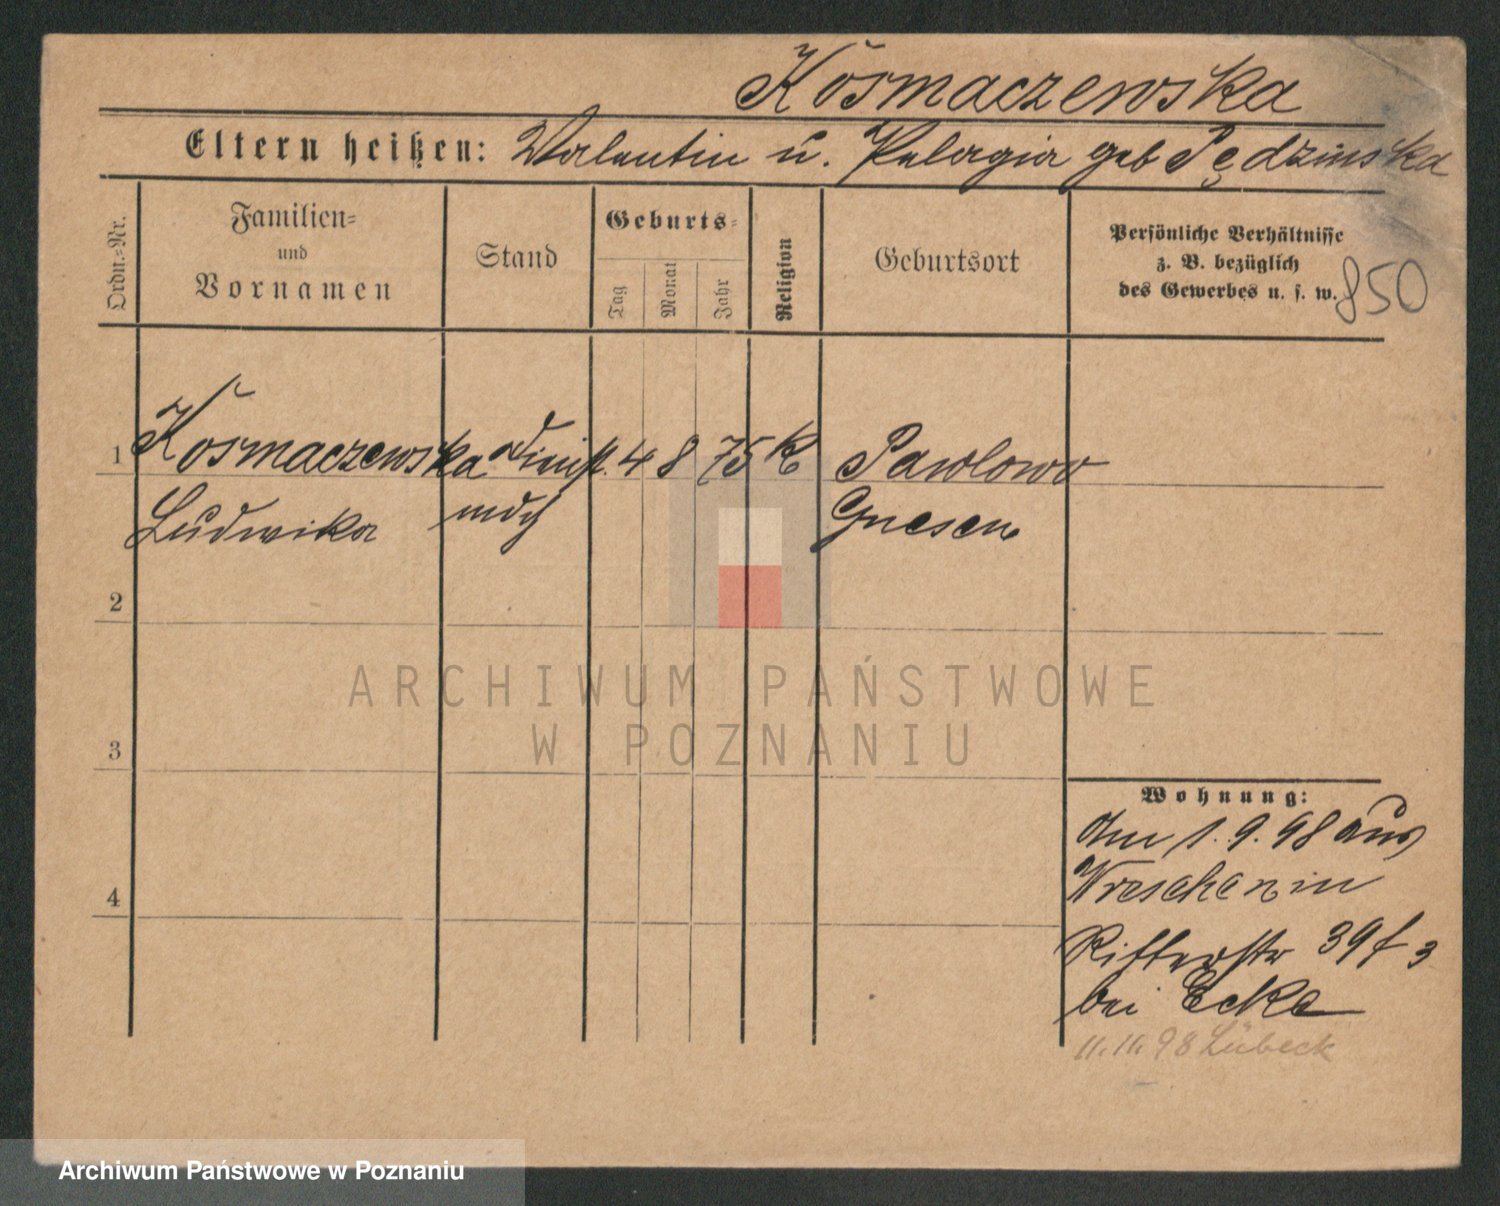 Kośmaczewska
Eltern heißen: Valentin u. Pelagia geb Pędzinska
Ordn.=Nr.
Familien=
und
Vornamen
Stand
Geburts=
Tag
Monat
Jahr
Religion
Geburtsort
Persönliche Verhältnisse
z. B. bezüglich
des Gewerbes u. s. w.
850
1 Kośmaczewska Dienst. 4 8 75 K Pawlowo
Ludwika mdch Gnesen
2
3
4
ARCHIWUM PAŃSTWOWE
W POZNANIU
Wohnung:
Am 1.9.98 aus
Wreschen in
Ritterstr 39 f 3
bei Ecke
11.11.98 Lübeck
Archiwum Państwowe w Poznaniu